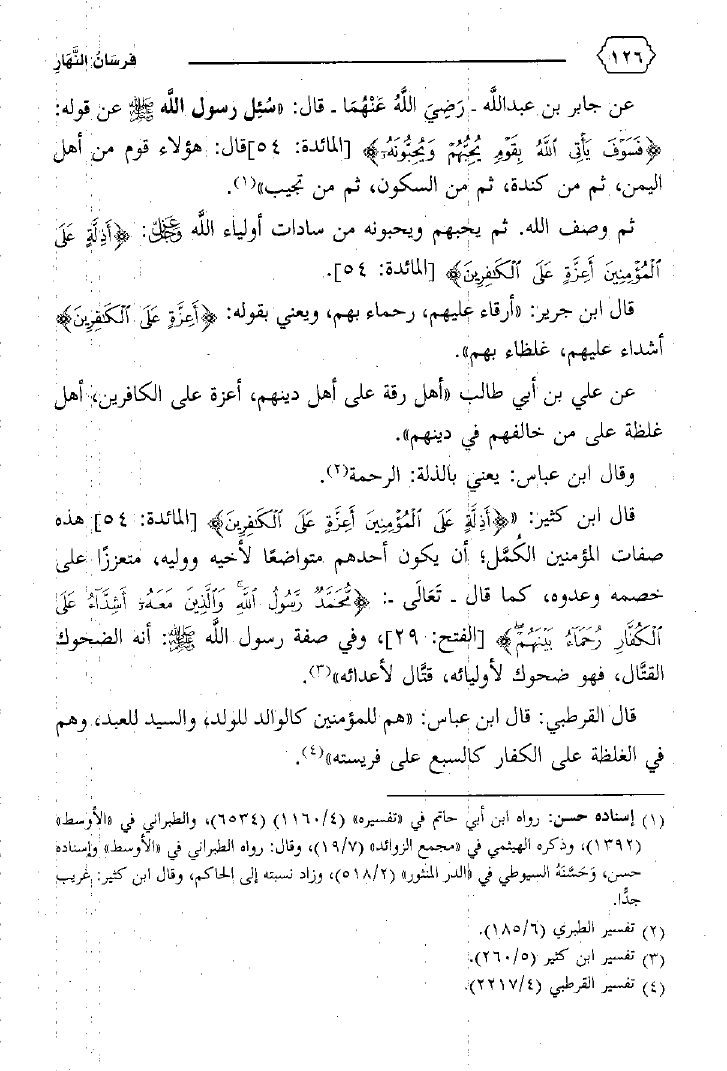 ١٢٦ فرسَانُ النَّهَارِ
عن جابر بن عبدالله ـ رَضِيَ اللَّهُ عَنْهُمَا ـ قال: «سُئِل رسول اللَّه ﷺ عن قوله:
﴿فَسَوْفَ يَأْتِي ٱللَّهُ بِقَوْمٍ يُحِبُّهُمْ وَيُحِبُّونَهُۥ﴾ [المائدة: ٥٤]قال: هؤلاء قوم من أهل
اليمن، ثم من كندة، ثم من السكون، ثم من تجيب»(١).
ثم وصف الله. ثم يحبهم ويحبونه من سادات أولياء اللَّه عَزَّوَجَلَّ: ﴿أَذِلَّةٍ عَلَى
ٱلْمُؤْمِنِينَ أَعِزَّةٍ عَلَى ٱلْكَٰفِرِينَ﴾ [المائدة: ٥٤].
قال ابن جرير: «أرقاء عليهم، رحماء بهم، ويعني بقوله: ﴿أَعِزَّةٍ عَلَى ٱلْكَٰفِرِينَ﴾
أشداء عليهم، غلظاء بهم».
عن علي بن أبي طالب «أهل رقة على أهل دينهم، أعزة على الكافرين، أهل
غلظة على من خالفهم في دينهم».
وقال ابن عباس: يعني بالذلة: الرحمة(٢).
قال ابن كثير: «﴿أَذِلَّةٍ عَلَى ٱلْمُؤْمِنِينَ أَعِزَّةٍ عَلَى ٱلْكَٰفِرِينَ﴾ [المائدة: ٥٤] هذه
صفات المؤمنين الكُمَّل؛ أن يكون أحدهم متواضعًا لأخيه ووليه، متعززًا على
خصمه وعدوه، كما قال ـ تَعَالَى ـ: ﴿مُّحَمَّدٌ رَّسُولُ ٱللَّهِ وَٱلَّذِينَ مَعَهُۥٓ أَشِدَّآءُ عَلَى
ٱلْكُفَّارِ رُحَمَآءُ بَيْنَهُمْ﴾ [الفتح: ٢٩]، وفي صفة رسول اللَّه ﷺ: أنه الضحوك
القتَّال، فهو ضحوك لأوليائه، قتَّال لأعدائه»(٣).
قال القرطبي: قال ابن عباس: «هم للمؤمنين كالوالد للولد، والسيد للعبد، وهم
في الغلظة على الكفار كالسبع على فريسته»(٤).
(١) إسناده حسن: رواه ابن أبي حاتم في «تفسيره» (١١٦٠/٤) (٦٥٣٤)، والطبراني في «الأوسط»
(١٣٩٢)، وذكره الهيثمي في «مجمع الزوائد» (١٩/٧)، وقال: رواه الطبراني في «الأوسط» وإسناده
حسن، وَحَسَّنَهُ السيوطي في «الدر المنثور» (٥١٨/٢)، وزاد نسبته إلى الحاكم، وقال ابن كثير: غريب
جدًّا.
(٢) تفسير الطبري (١٨٥/٦).
(٣) تفسير ابن كثير (٢٦٠/٥).
(٤) تفسير القرطبي (٢٢١٧/٤).